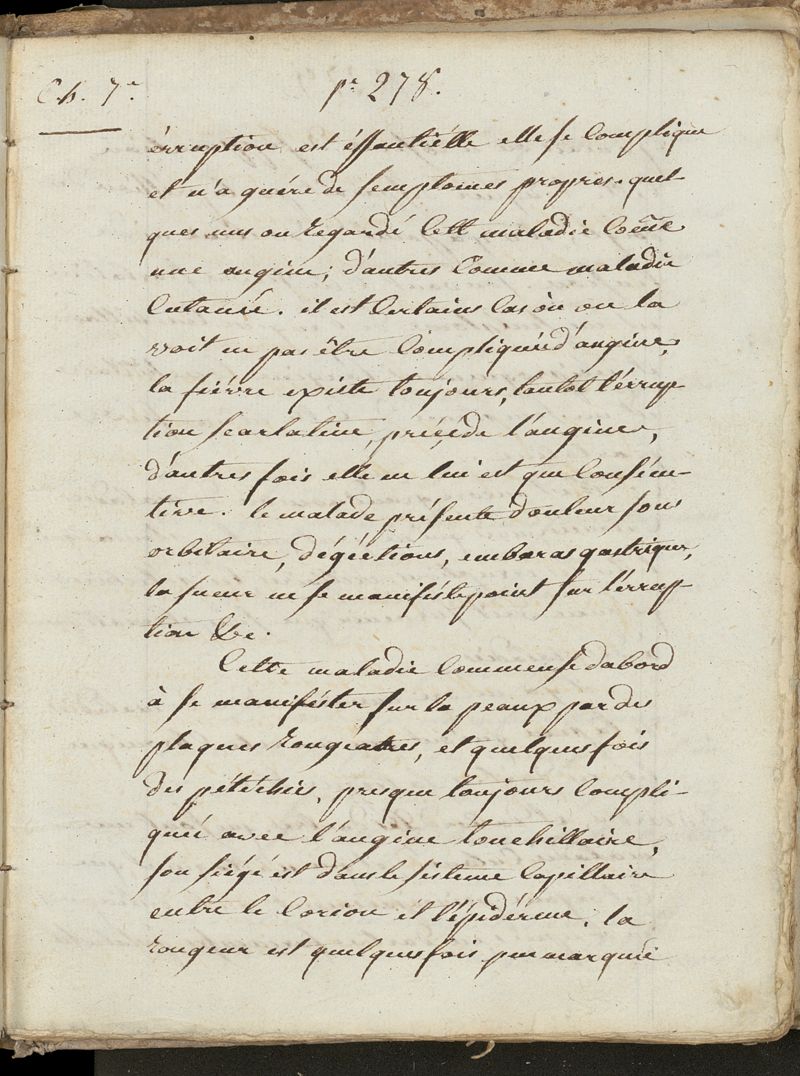 Ch. 7e.
pe 278.
érruption est éssentiélle elle se Complique
et n'a guére de semptomes propres. quel-
ques uns on regardé Cett maladie Come
une angine; d'autres Comme maladie
Cutanée. il est Certains Cas où on la
voit ne pas être Compliquée d'angine,
la fiévre existe toujours, tantôt l'érrup-
tion scarlatine, précéde l'angine,
d'autres fois elle ne lui est que Consécu-
tive. le malade présente douleur sous
orbitaire, dégéctions, embaras gastrique,
la sueur ne se manifeste point sur l'érrup-
tion &c.
Cette maladie Commense dabord
à se manifester sur la peaux par des
plaques rougeatres, et quelques fois
des pétéchies, presque toujours Compli-
quée avec l'angine tonchillaire,
son siége est dans le sisteme Capillaire
entre le Corion et l'épidérme. la
rougeur est quelques fois peu marquée